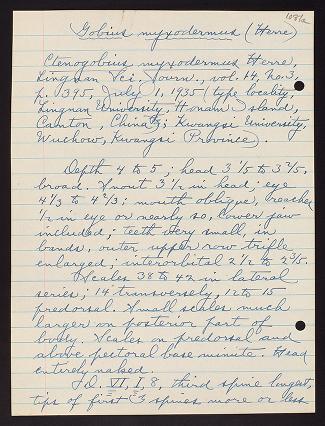 1081a
Gobius myxodermus (Herre)
Ctenogobius myxodermus Herre,
Lingnan Sci. Journ., vol. 14, no. 3,
p. 395, July 1, 1935 (type locality,
Lingnan University, Honam Island,
Canton, China; Kwangsi University,
Wuchow, Kwangsi Province).
Depth 4 to 5; head 3 1/5 to 3 2/5,
broad. Snout 3 1/2 in head; eye
4 1/3 to 4 2/3; mouth oblique, reaches
1/2 in eye or nearly so, lower jaw
included; teeth very small, in
bands, outer upper row trifle
enlarged; interorbital 2 1/2 to 2 3/5.
Scales 38 to 42 in lateral
series; 14 transversely, 12 to 15
predorsal. Small scales much
larger on posterior part of
body. Scales on predorsal and
above pectoral base minute. Head
entirely naked.
D. VI, I, 8, third spine longest,
tips of first 3 spines more or less